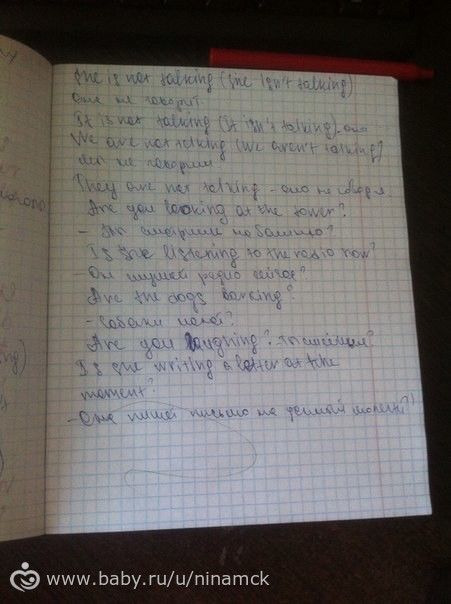 She is not talking (She isn't talking)
Она не говорит
It is not talking (It isn't talking) - оно
We are not talking (We aren't talking)
Мы не говорим
They are not talking - они не говоря
Are you looking at the tower?
- Ты смотришь на башню?
Is she listening to the radio now?
- Он слушает радио сейчас?
Are the dogs barking?
- Собаки лают?
Are you laughing?
Is she writing a letter at the
moment?
- Она пишет письмо на данный момент?
www.baby.ru/u/ninamck